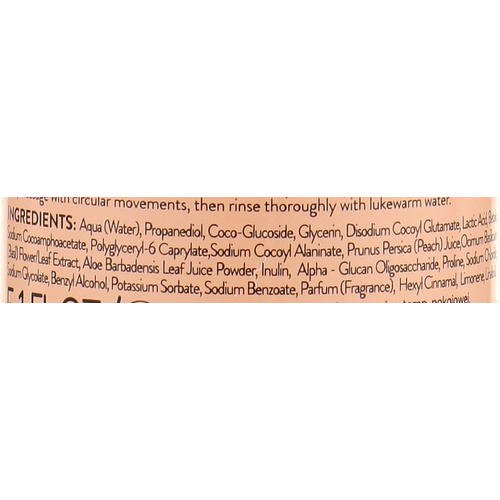 with circular movements, then rinse thoroughly with lukewarm water.
INGREDIENTS: Aqua (Water), Propanediol, Coco-Glucoside, Glycerin, Disodium Cocoyl Glutamate, Lactic Acid,
Sodium Cocoamphoacetate, Polyglyceryl-6 Caprylate, Sodium Cocoyl Alaninate, Prunus Persica (Peach) Juce, Ocimum
(Basil) Flower/Leaf Extract, Aloe Barbadensis Leaf Juice Powder, Inulin, Alpha - Glucan Oligosaccharide, Proline, Sodium
Sodium Glycolate, Benzyl Alcohol, Potassium Sorbate, Sodium Benzoate, Parfum (Fragrance), Hexyl Cinnamal, Limonene,
pokojowej